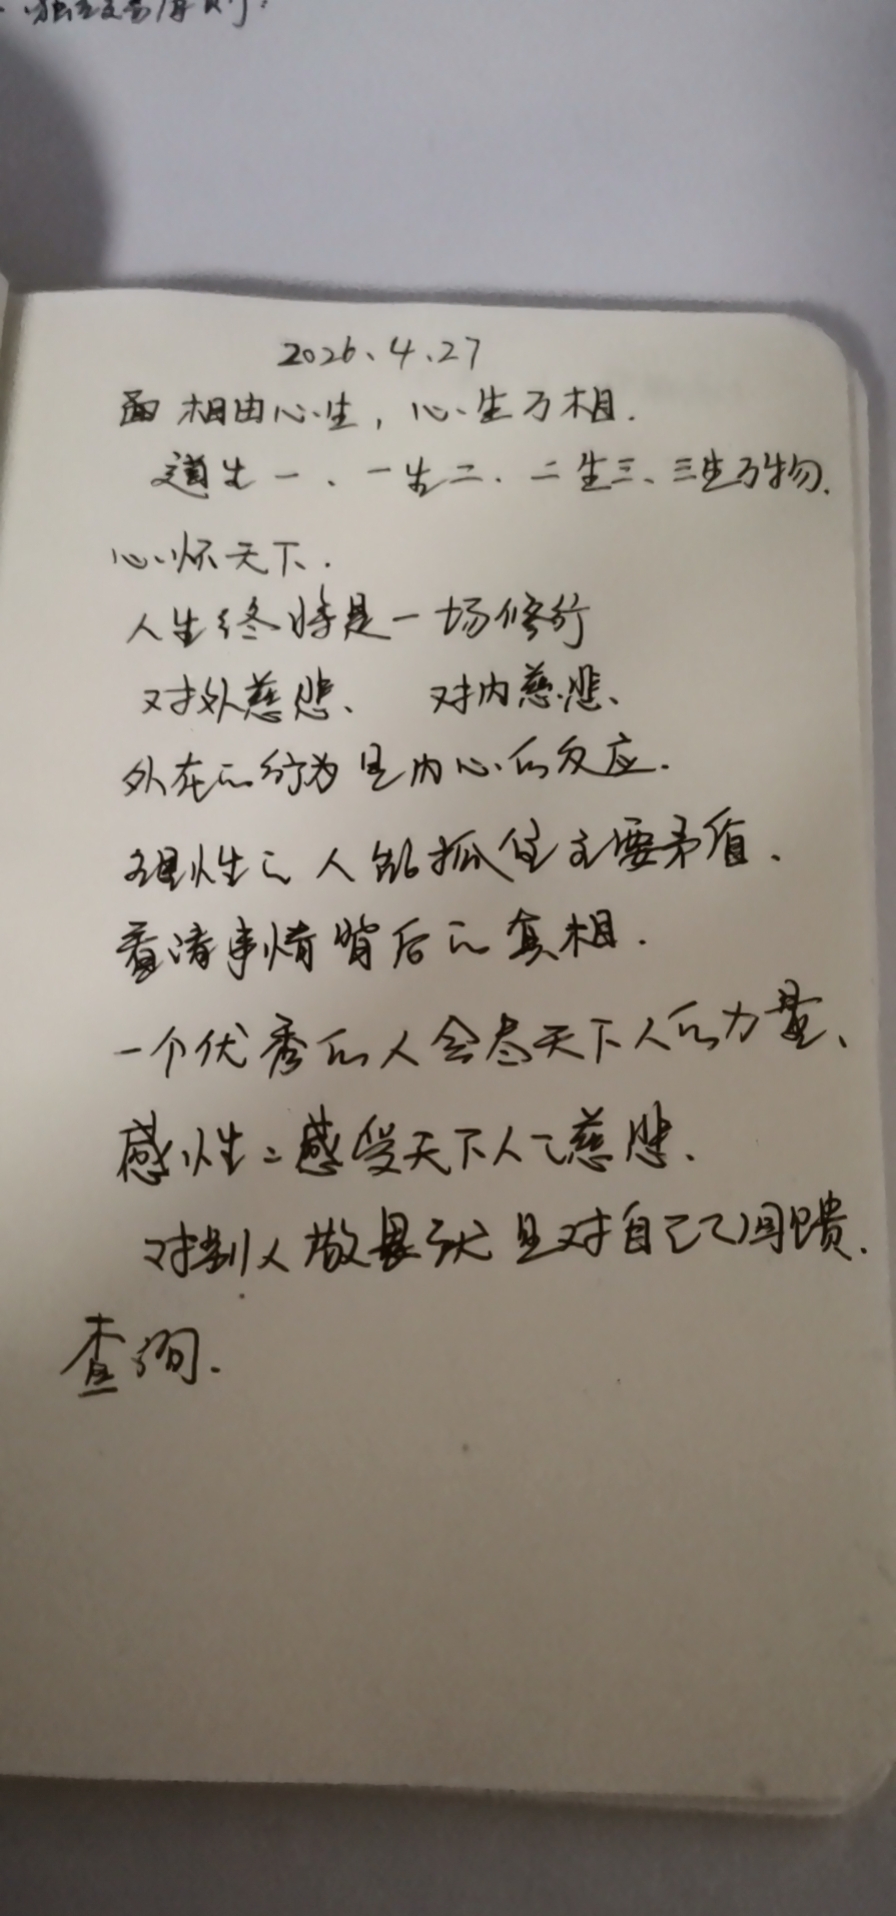 2026.4.27
面相由心生,心生万相.
道生一、一生二.二生三、三生万物.
心怀天下.
人生终将是一场修行
对外慈悲、 对内慈悲、
外在的行为是内心的反应.
理性的人能抓住主要矛盾.
看清事情背后的真相.
一个优秀的人会尽天下人的力量、
感性：感受天下人的慈悲.
对别人做最就是对自己的回馈.
查询.